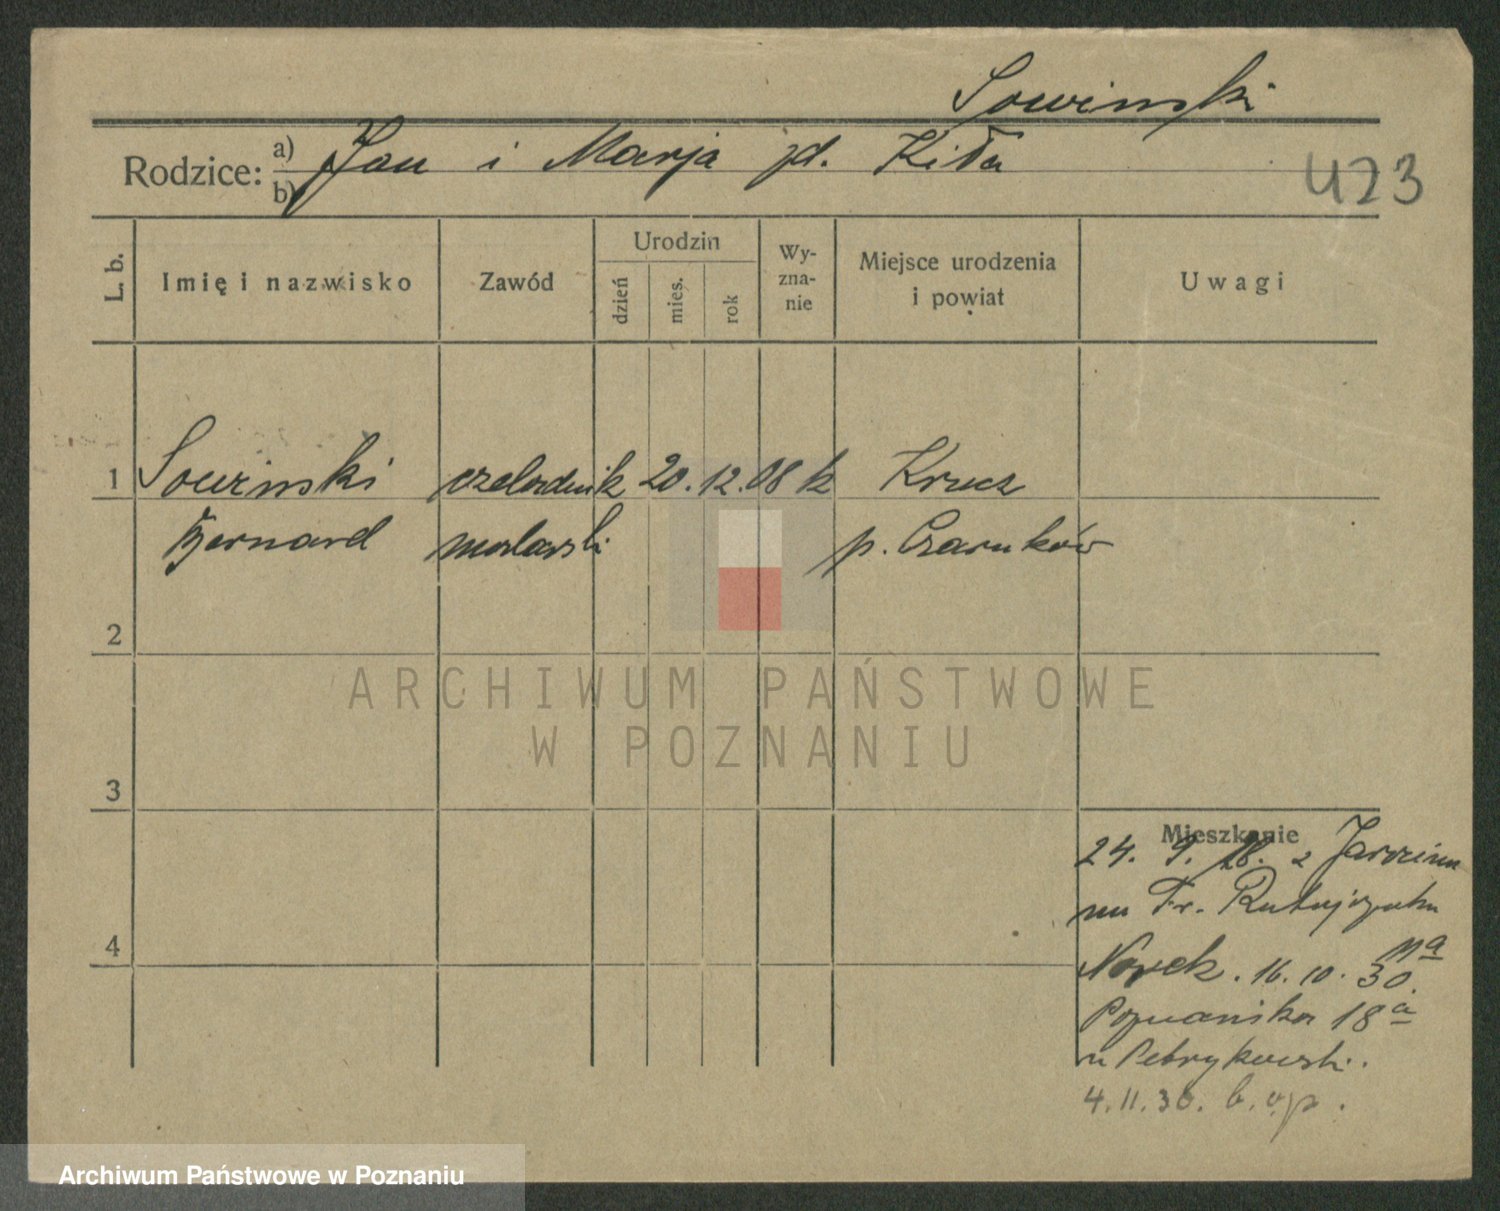 Sowinski
Rodzice: a) Jan i Marja zd. Kita
b)
423
L. b.
Imię i nazwisko
Zawód
Urodzin
dzień
mies.
rok
Wy-
zna-
nie
Miejsce urodzenia
i powiat
Uwagi
1 Sowinski czeladnik 20. 12. 08 k Krucz
Bernard malarski p. Czarnków
2
3
4
Mieszkanie
24. 9. 28. z Jarocina
na Fr. Ratajczaka
11a
16. 10. 30.
Poznańska 18a
u Petrykowski.
4. 11. 30. b. o p.
ARCHIWUM PAŃSTWOWE
W POZNANIU
Archiwum Państwowe w Poznaniu